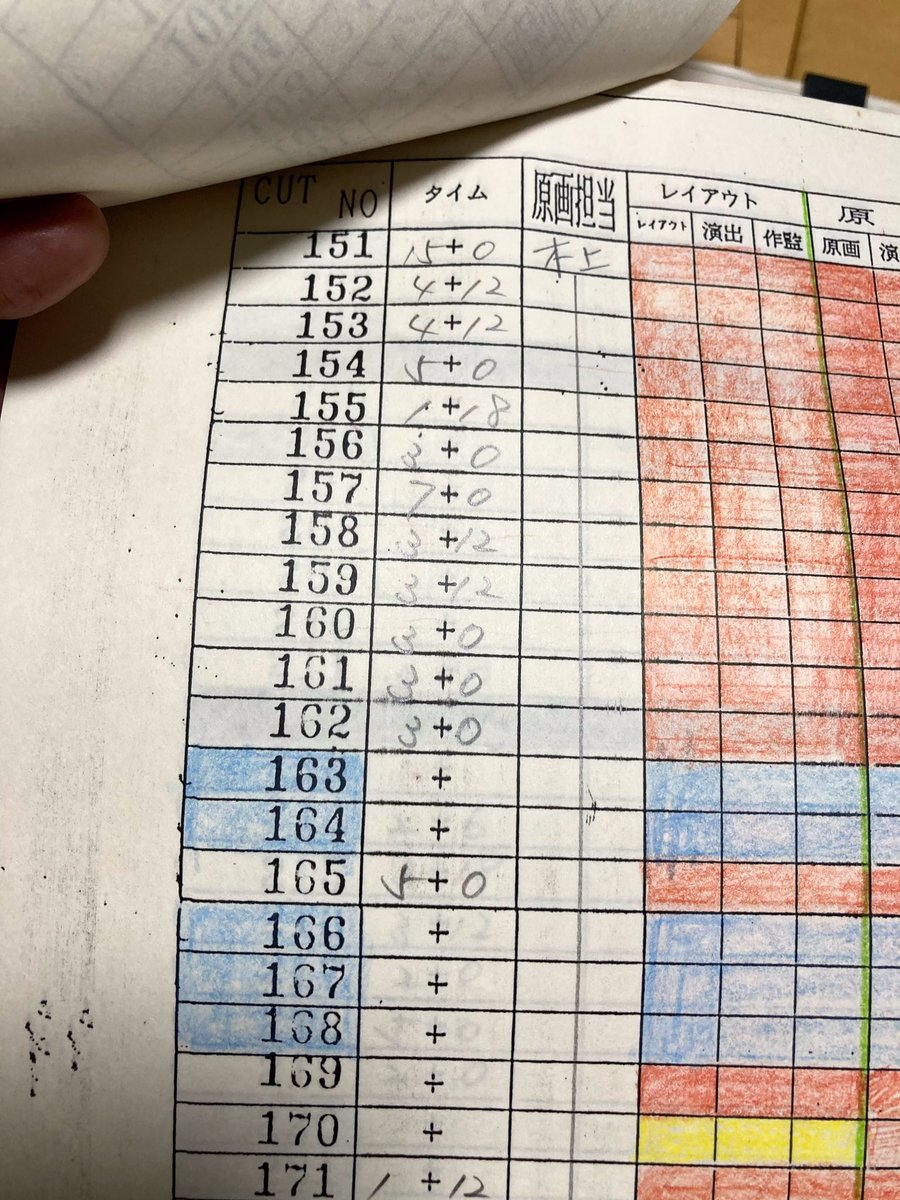 CUT NO タイム 原画担当 レイアウト 原
レイアウト 演出 作監 原画 演
151 15+0
152 4+12
153 4+12
154 5+0
155 1+18
156 3+0
157 7+0
158 3+12
159 3+12
160 3+0
161 3+0
162 3+0
163 +
164 +
165 5+0
166 +
167 +
168 +
169 +
170 +
171 1+12